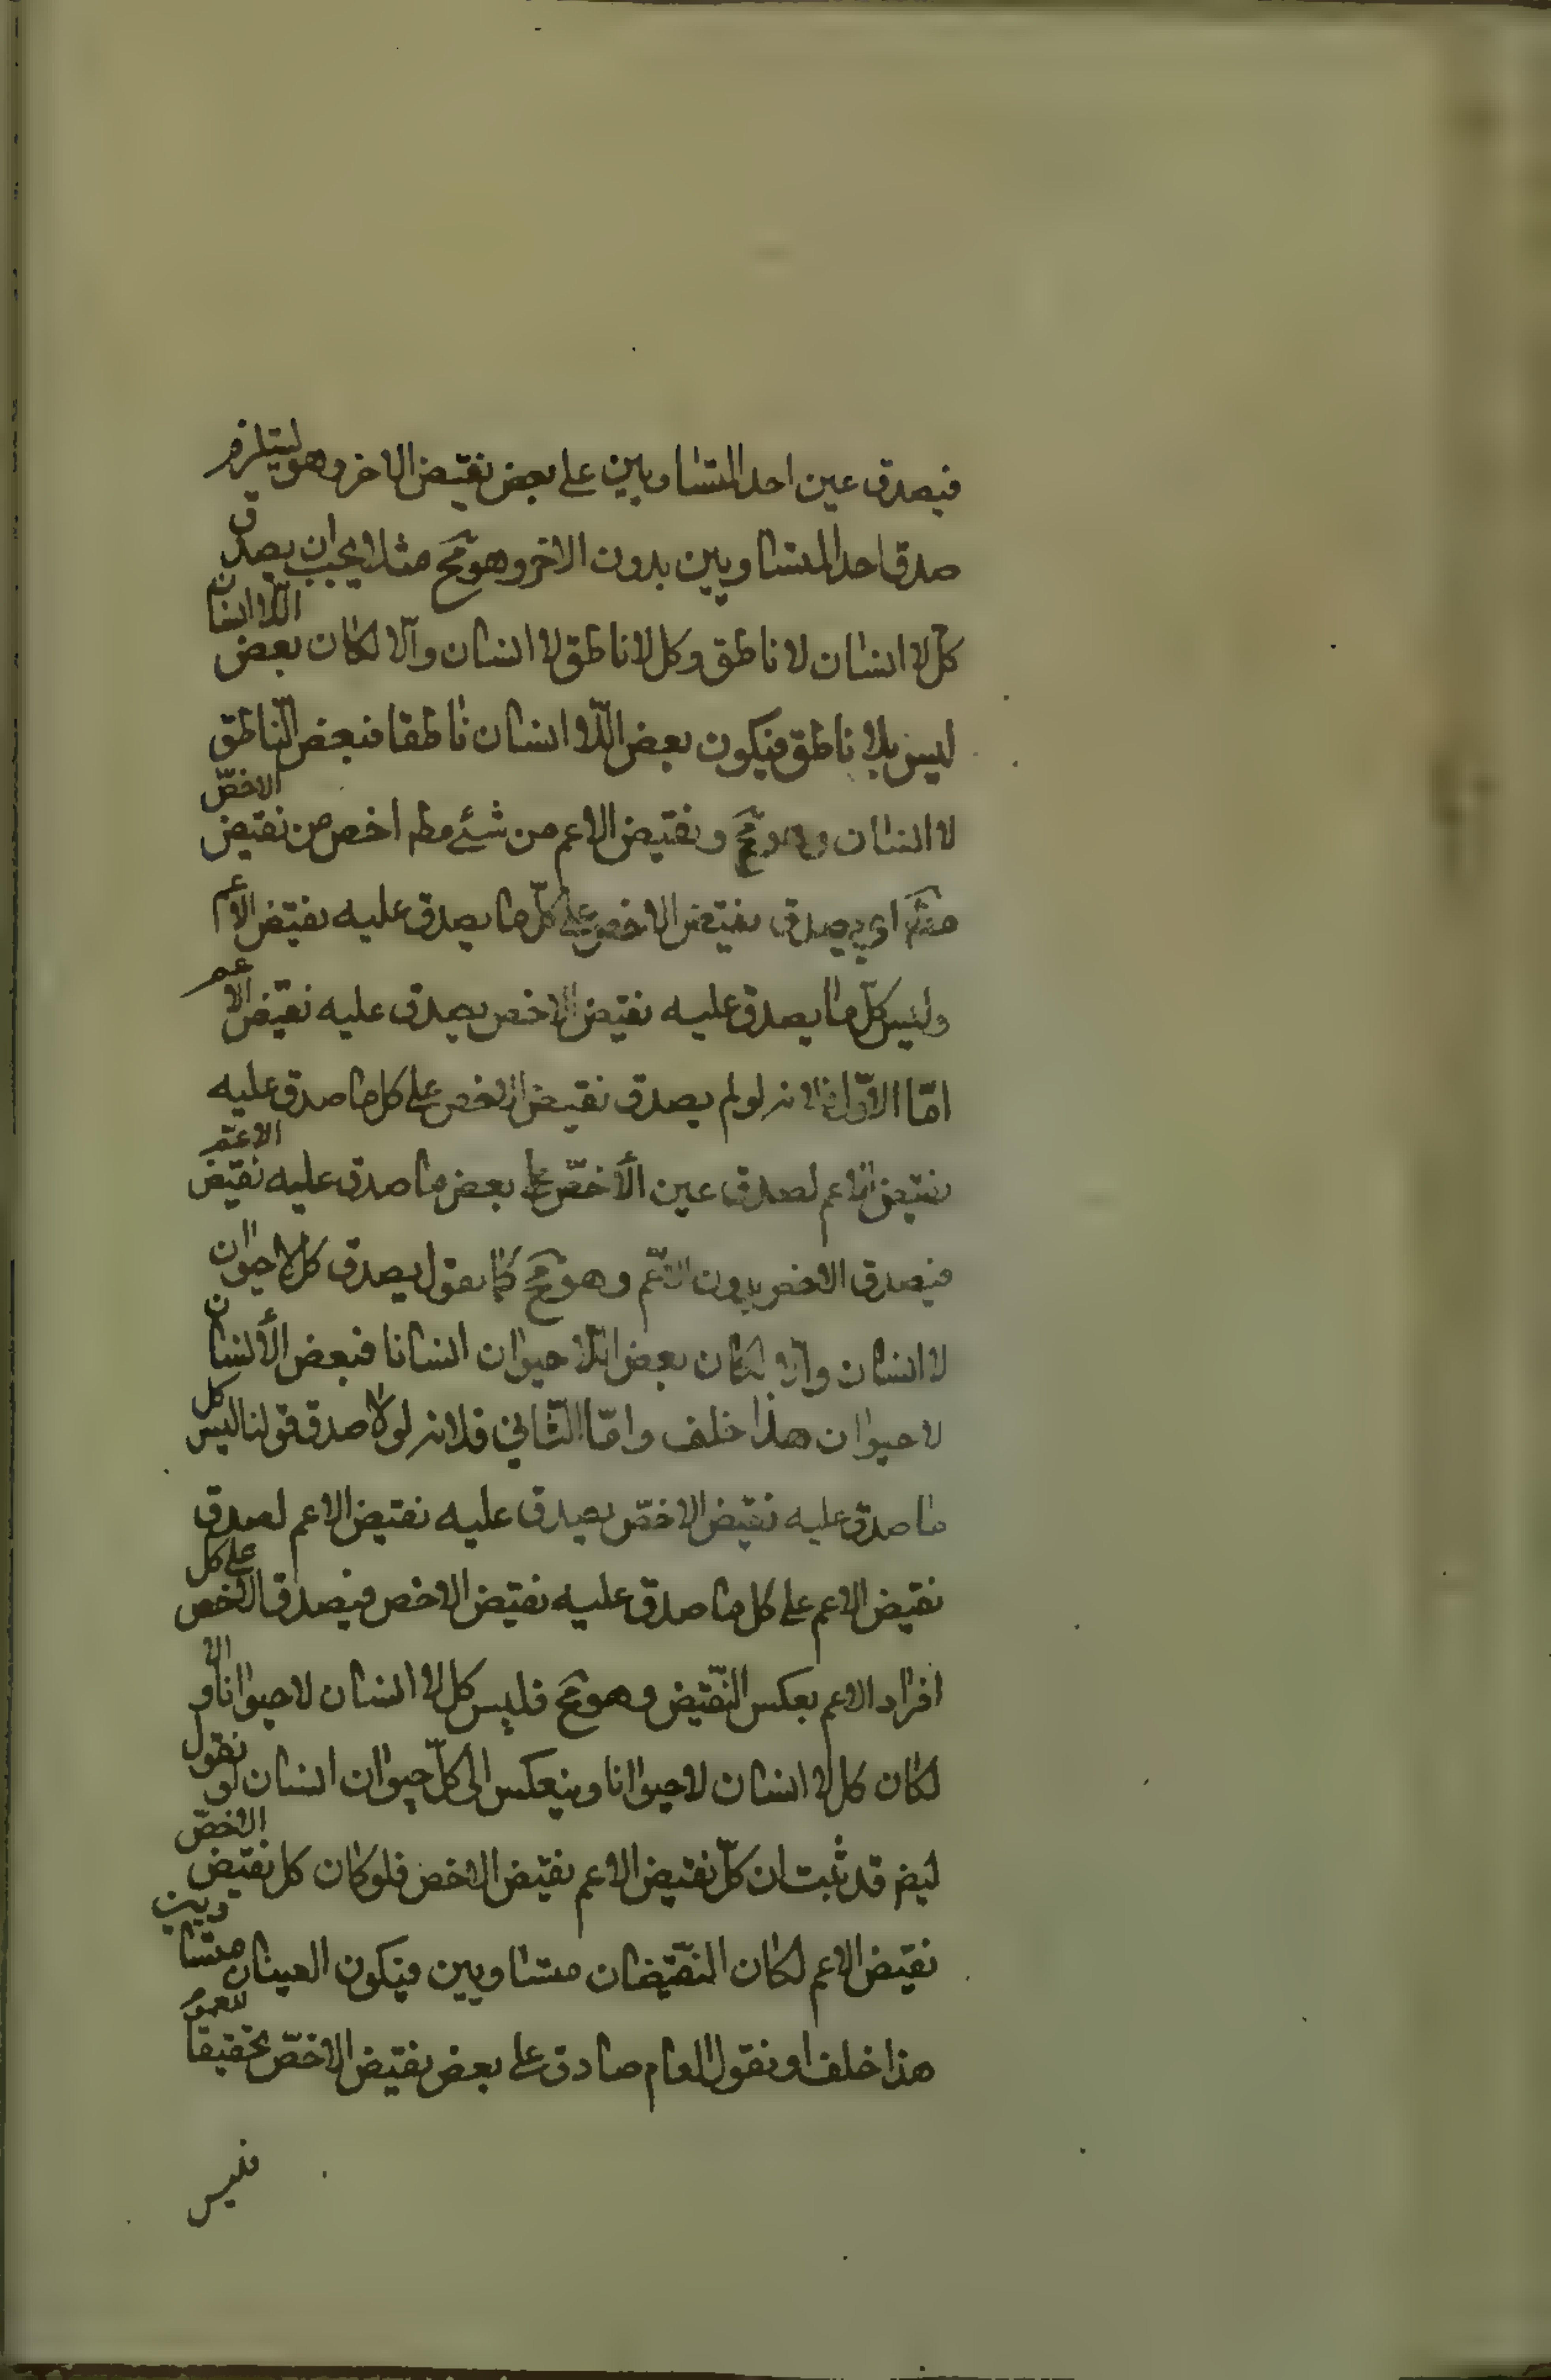 فيصدق عين احد المتساويين علی بعض نقيض الاخر وهو يستلزم
صدق احد المتساويين بدون الاخر وهو مح مثلا يجب ان يصدق
كل لا انسان لا ناطق وكل لا ناطق لا انسان والّا لكان بعض اللّا انسان
ليس بلا ناطق فيكون بعض اللّا انسان ناطقا فبعض النّاطق
لا انسان وهو مح ونقيض الاعم من شئ مط اخص من نقيض الاخصّ
مط اى يصدق نقيض الاخص علی كلّ ما يصدق عليه نقيض الاعم
وليس كلّ ما يصدق عليه نقيض الاخص يصدق عليه نقيض الاعم
امّا الاوّل فلانه لو لم يصدق نقيض الاخص علی كل ما صدق عليه
نقيض الاعم لصدق عين الأخصّ علی بعض ما صدق عليه نقيض الاعمّ
فيصدق الاخص بدون الاعمّ وهو مح كما نقول يصدق كل لا حيوان
لا انسان والّا لكان بعض اللّا حيوان انسانا فبعض الأنسان
لا حيوان هذا خلف وامّا الثّاني فلانه لولا صدق قولنا ليس كل
ما صدق عليه نقيض الاخصّ يصدق عليه نقيض الاعم لصدق
نقيض الاعم علی كل ما صدق عليه نقيض الاخص فيصدق الاخص علی كل
افراد الاعم بعكس النّقيض وهو مح فليس كل لا انسان لا حيوانا والّا
لكان كل لا انسان لا حيوانا وينعكس الی كلّ حيوان انسان او نقول
ايضم قد ثبت ان كلّ نقيض الاعم نقيض الاخص فلو كان كل نقيض الاخصّ
نقيض الاعم لكان النّقيضان متساويين فيكون العينان متساويين
هذا خلف او نقول العام صادق علی بعض نقيض الاخصّ تحقيقا للعموم
فليس